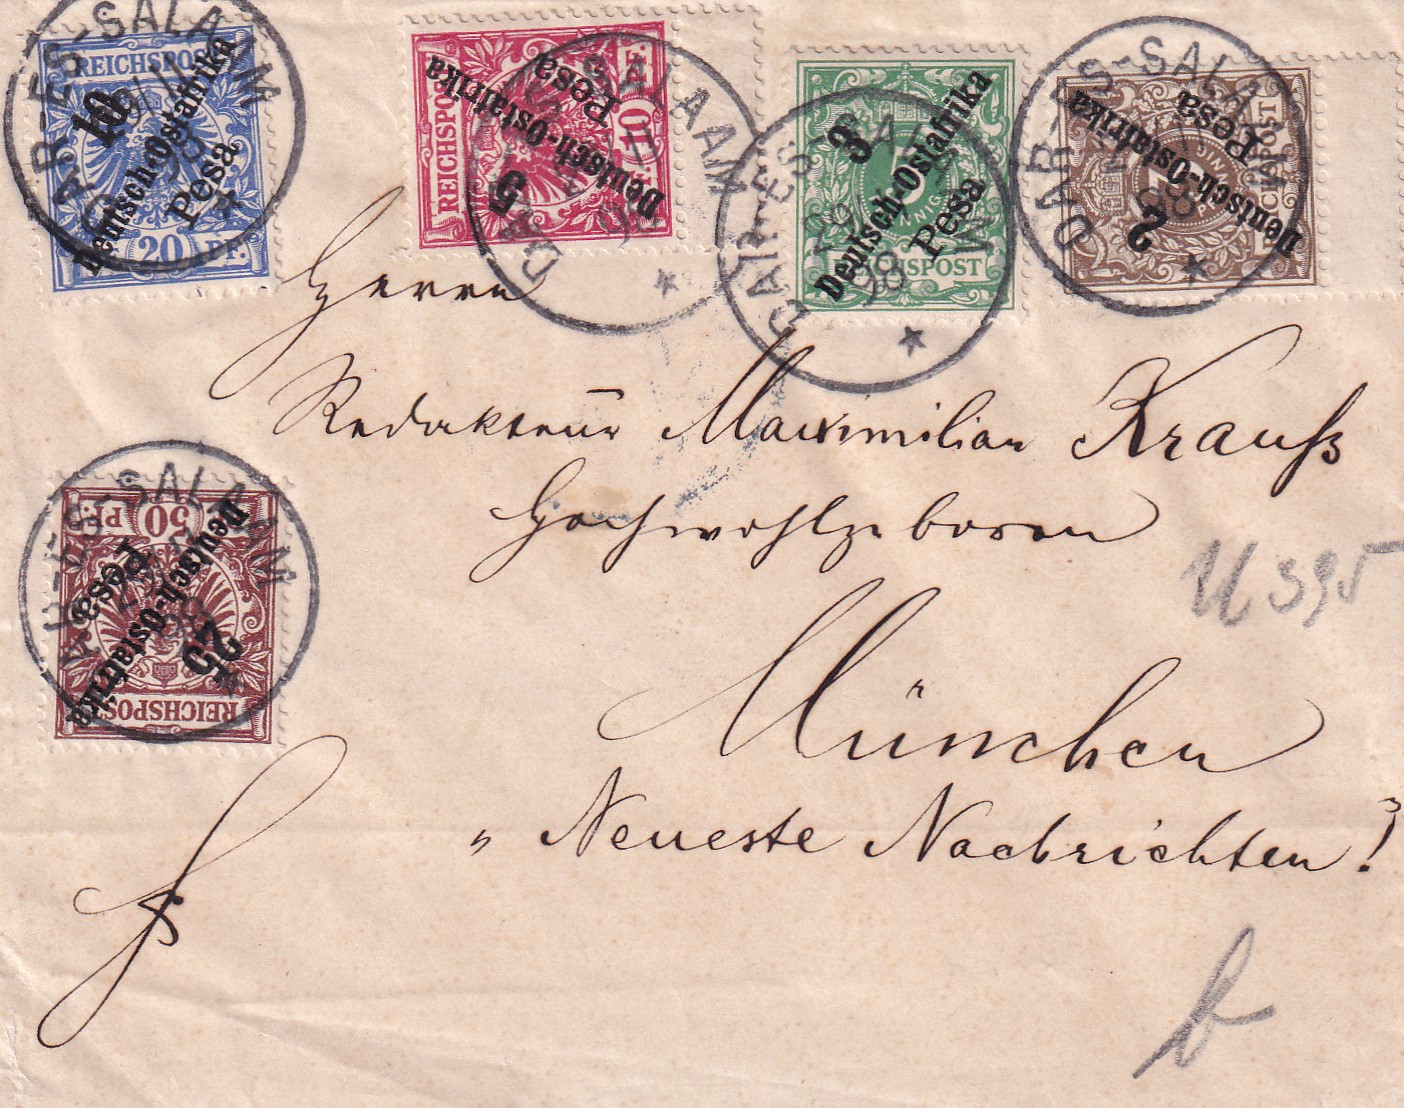 DAR-ES-SALAAM
98
REICHSPOST
10
Deutsch-Ostafrika
Pesa
20 PF.
DAR-ES-SALAAM
98
REICHSPOST
10 PF.
5
Deutsch-Ostafrika
Pesa
DAR-ES-SALAAM
98
3
Deutsch-Ostafrika
Pesa
5
REICHSPOST
DAR-ES-SALAAM
98
REICHSPOST
2
Deutsch-Ostafrika
Pesa
Herrn
Redakteur Maximilian Krauß
Hochwohlgeboren
DAR-ES-SALAAM
50 PF.
25
Deutsch-Ostafrika
Pesa
REICHSPOST
395
München
„Neueste Nachrichten"!
b